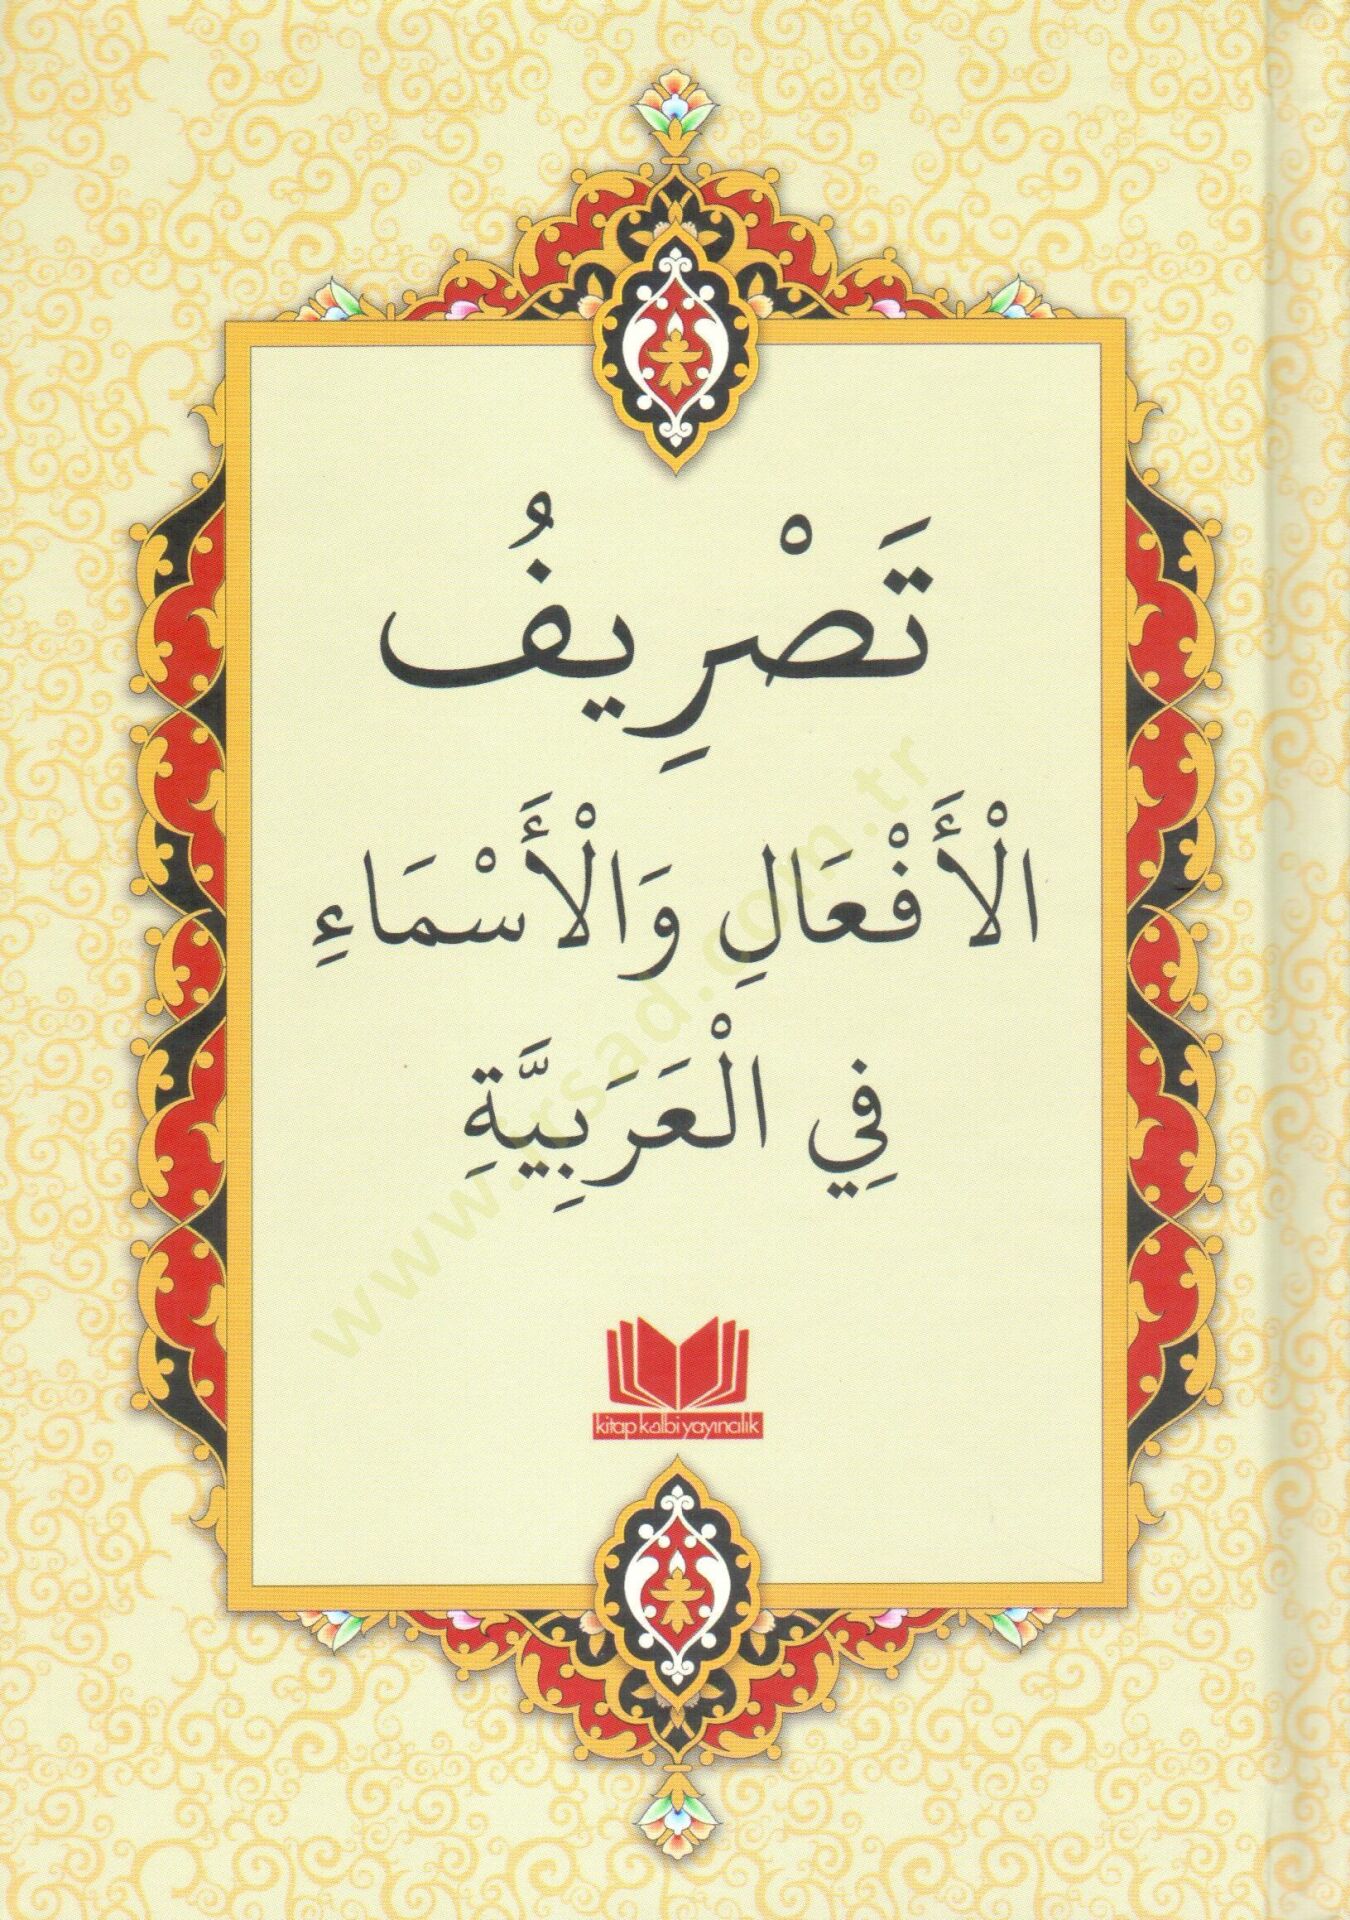 تَصْرِيفُ
الْأَفْعَالِ وَالْأَسْمَاءِ
فِي الْعَرَبِيَّةِ
kitap kalbi yayıncılık
www.irsad.com.tr